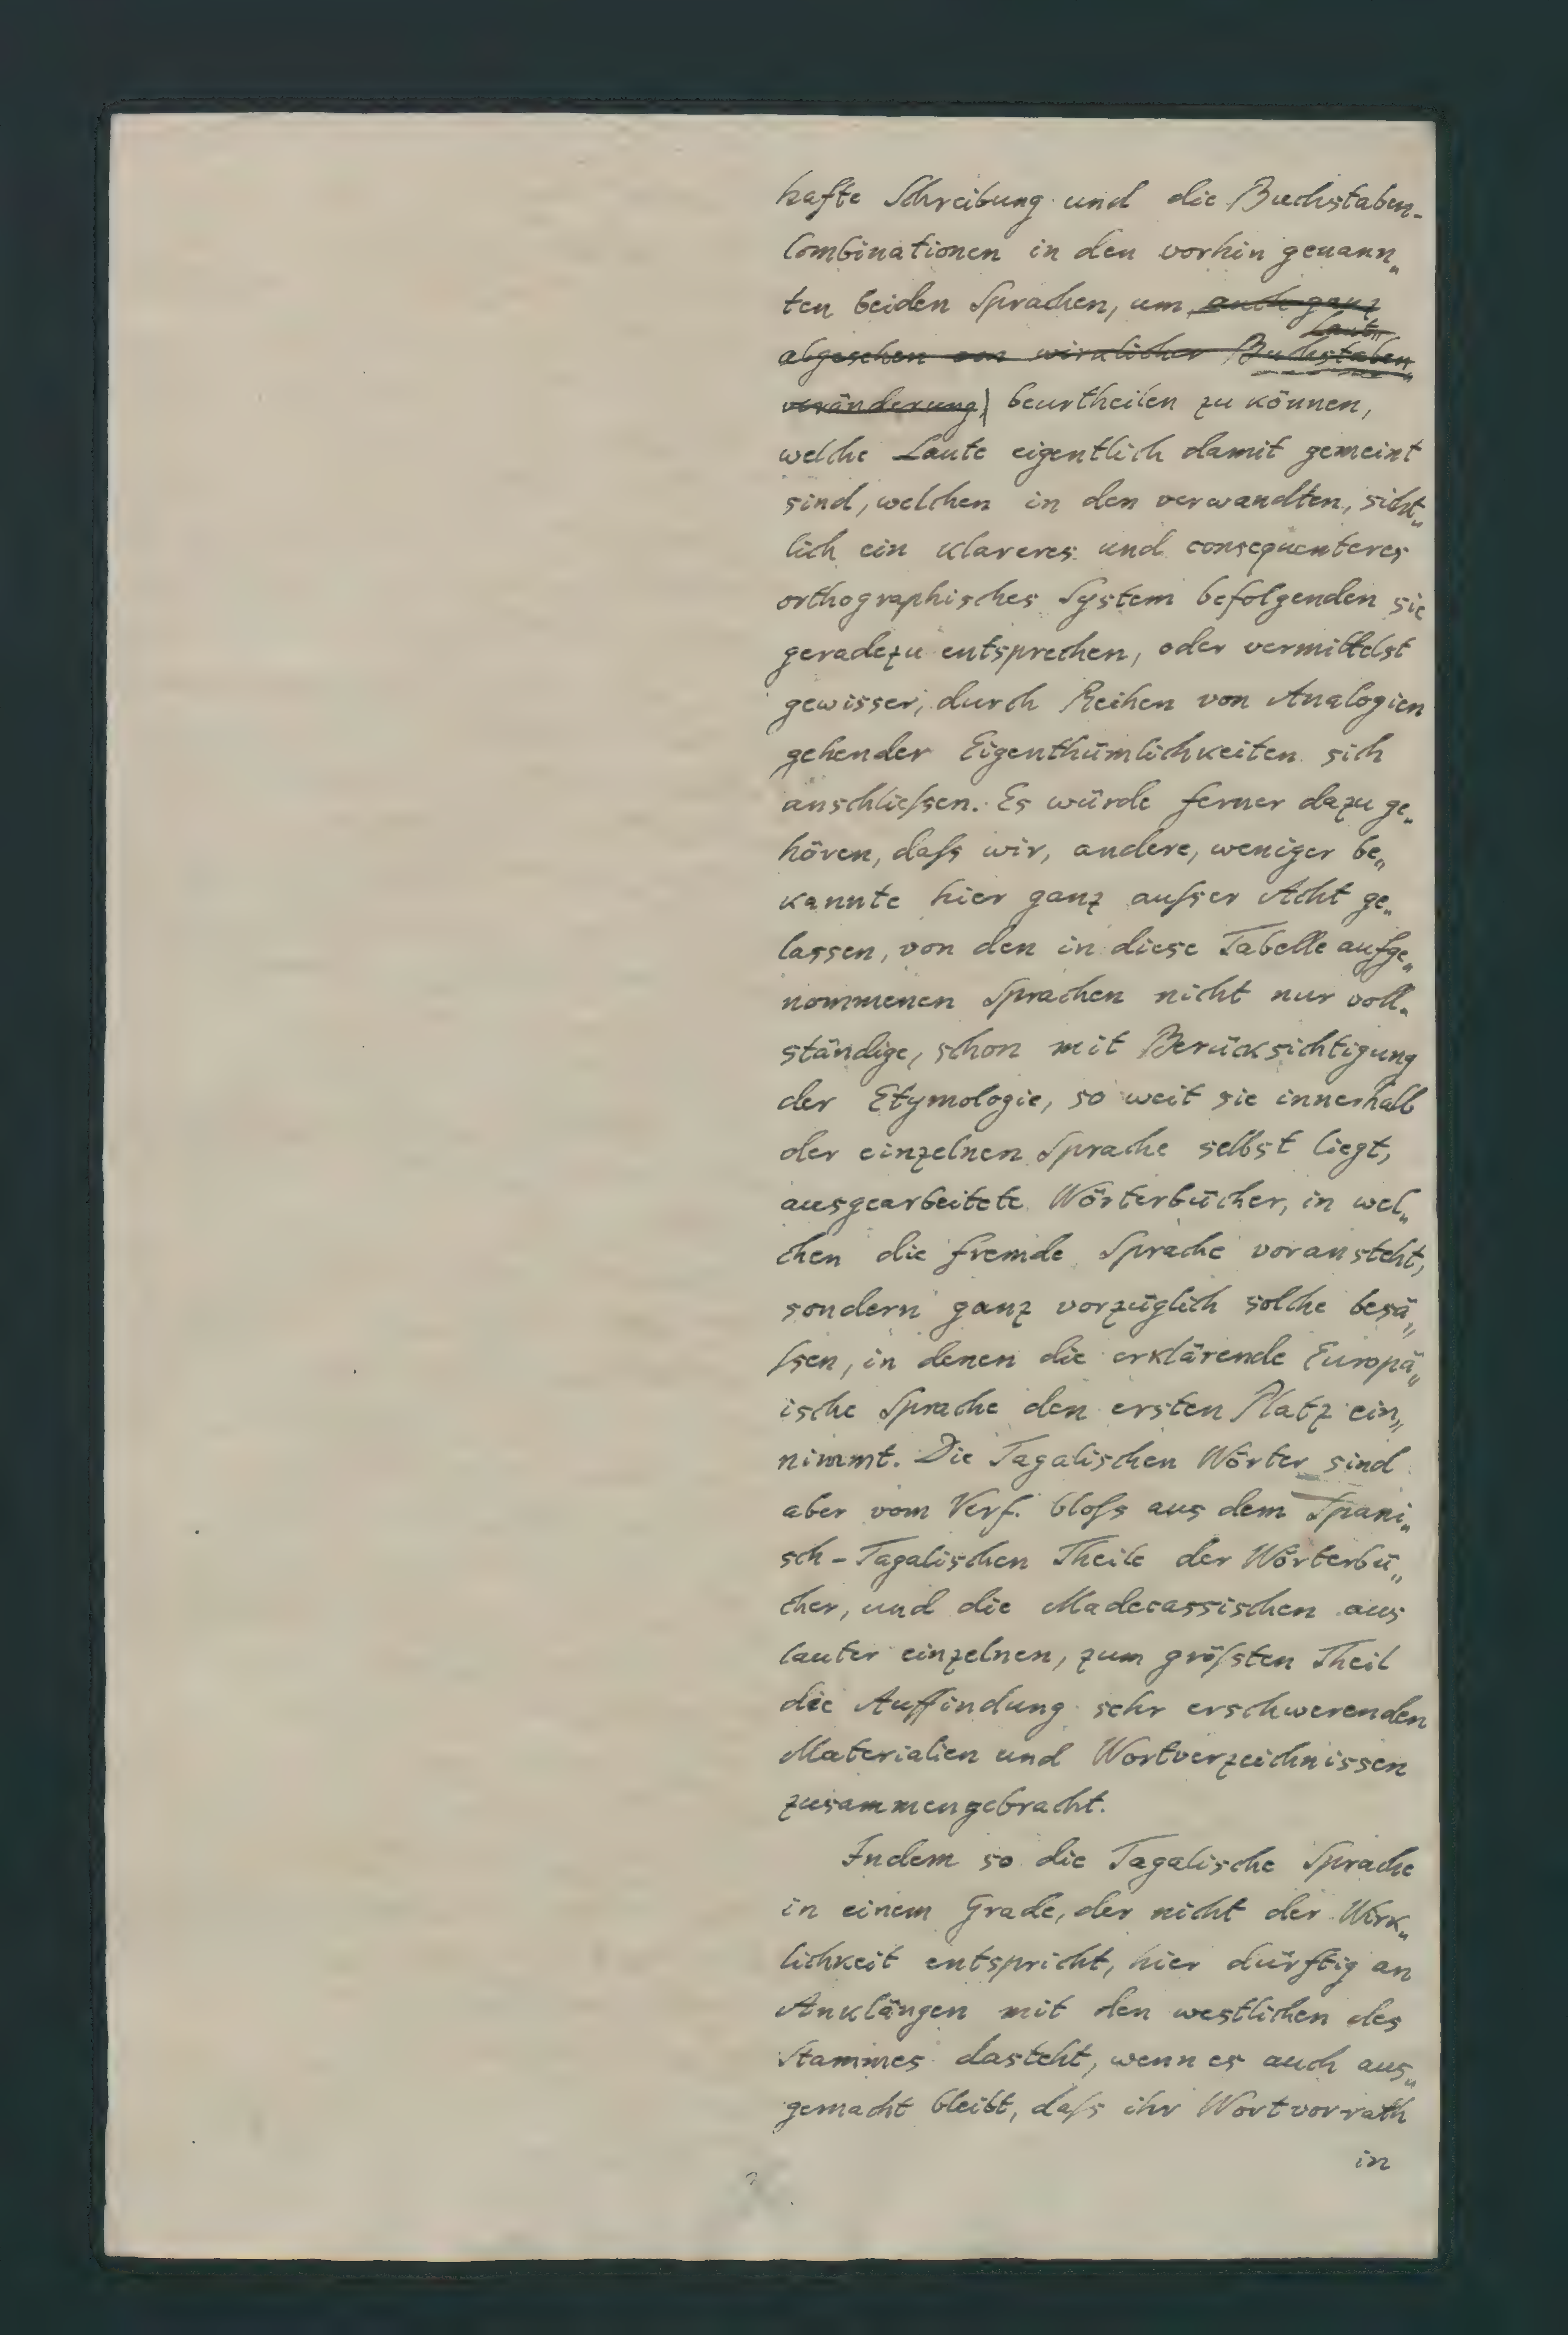 hafte Schreibung und die Buchstaben-
Combinationen in den vorhin genann„
ten beiden Sprachen, um auch ganz
Laut„
abgesehen von wirklicher Buchstaben„
veränderung) beurtheilen zu können,
welche Laute eigentlich damit gemeint
sind, welchen in den verwandten, sicht„
lich ein klareres und consequenteres
orthographisches System befolgenden sie
geradezu entsprechen, oder vermittelst
gewisser, durch Reihen von Analogien
gehender Eigenthümlichkeiten sich
anschließen. Es würde ferner dazu ge„
hören, daſs wir, andere, weniger be„
kannte hier ganz auſser Acht ge„
lassen, von den in diese Tabelle aufge„
nommenen Sprachen nicht nur voll„
ständige, schon mit Berücksichtigung
der Etymologie, so weit sie innerhalb
der einzelnen Sprache selbst liegt,
ausgearbeitete Wörterbücher, in wel„
chen die fremde Sprache voransteht,
sondern ganz vorzüglich solche besä„
ſsen, in denen die erklärende Europä„
ische Sprache den ersten Platz ein„
nimmt. Die Tagalischen Wörter sind
aber vom Verf. bloſs aus dem Spani„
sch-Tagalischen Theile der Wörterbü„
cher, und die Madecassischen aus
lauter einzelnen, zum gröſsten Theil
die Auffindung sehr erschwerenden
Materialien und Wortverzeichnissen
zusammengebracht.
Indem so die Tagalische Sprache
in einem Grade, der nicht der Wirk„
lichkeit entspricht, hier dürftig an
Anklängen mit den westlichen des
Stammes dasteht, wenn es auch aus„
gemacht bleibt, daſs ihr Wortvorrath
in